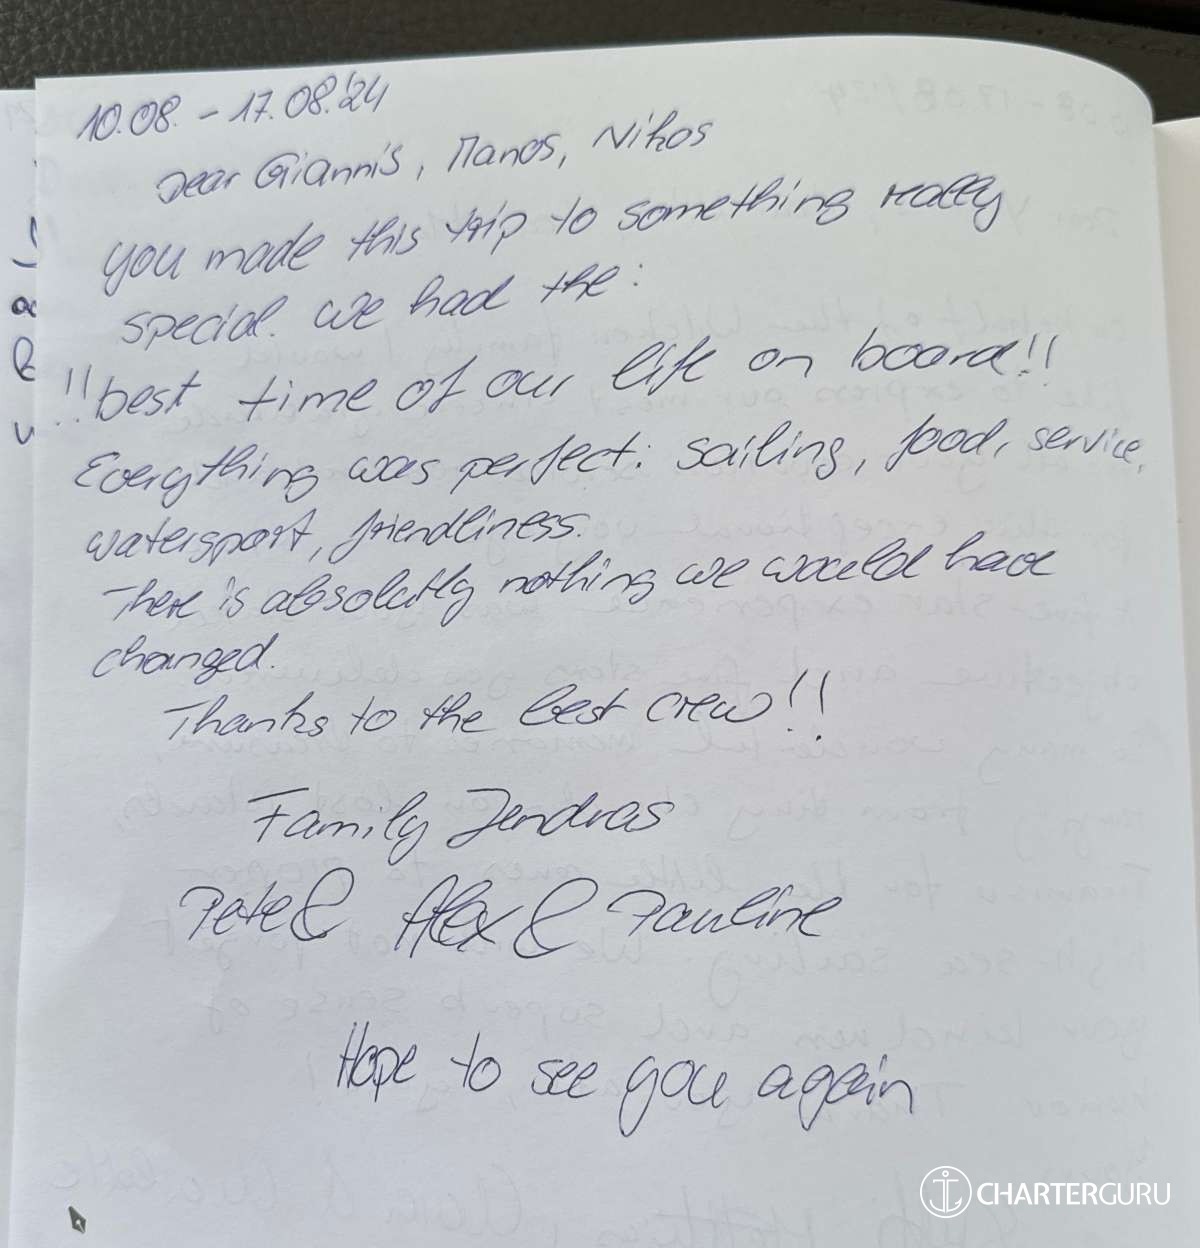 10.08. - 17.08.'24
Dear Giannis, Manos, Nikos
you made this trip to something really
special. We had the:
!!best time of our life on board!!
Everything was perfect: sailing, food, service,
watersport, friendliness.
There is absolutly nothing we would have
changed.
Thanks to the best crew!!
Family Jendras
Pete & Alex & Pauline
Hope to see you again
CHARTERGURU